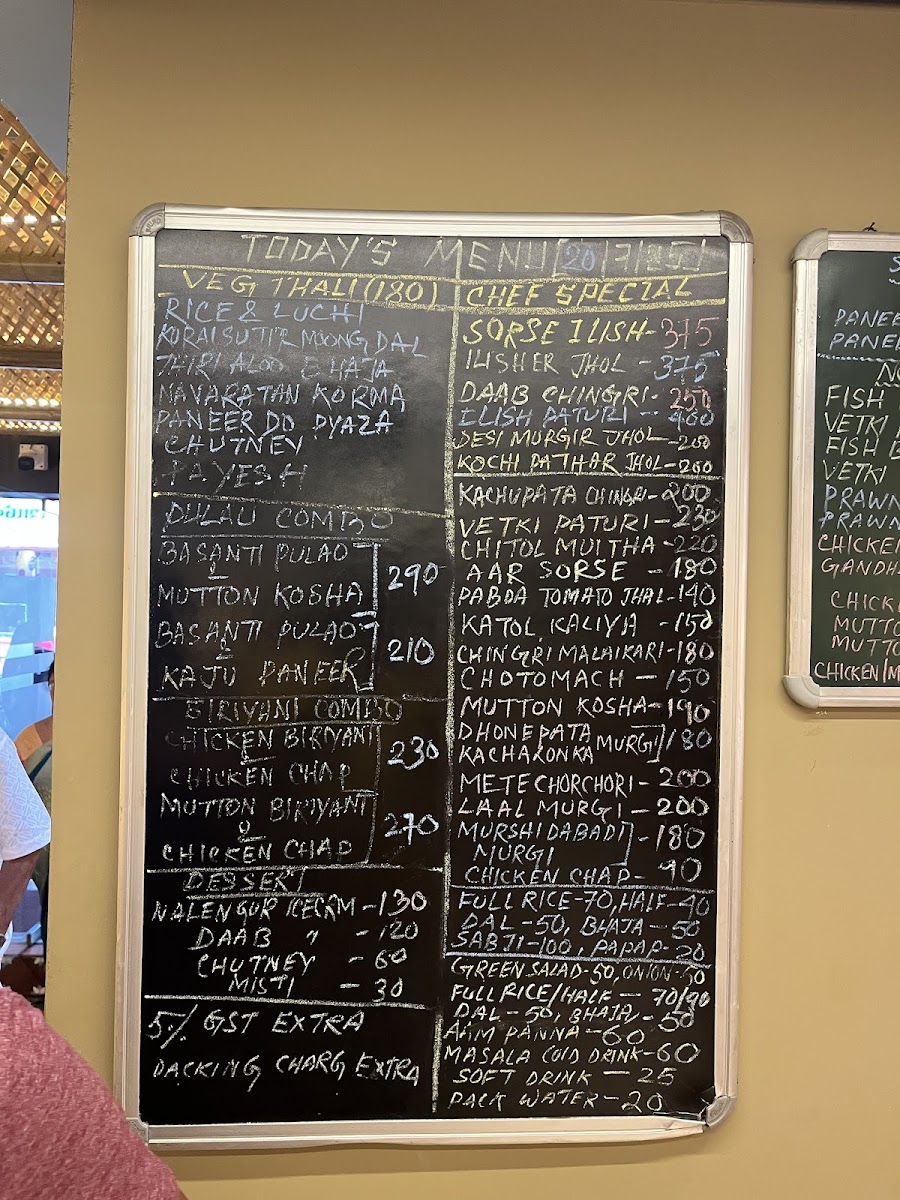 TODAY'S MENU 20/7/25
VEG THALI (180)
RICE & LUCHI
KORAISUTIR MOONG DAL
JHIRI ALOO BHAJA
NAVARATAN KORMA
PANEER DO PYAZA
CHUTNEY
PAYESH
PULAU COMBO
BASANTI PULAO
&
MUTTON KOSHA
290
BASANTI PULAO
&
KAJU PANEER
210
BIRIYANI COMBO
CHICKEN BIRIYANI
&
CHICKEN CHAP
230
MUTTON BIRIYANI
&
CHICKEN CHAP
270
DESSERT
NALENGUR ICECRM - 130
DAAB " - 120
CHUTNEY - 60
MISTI - 30
5% GST EXTRA
PACKING CHARG EXTRA
CHEF SPECIAL
SORSE ILISH - 375
ILISHER JHOL - 375
DAAB CHINGRI - 250
ILISH PATURI - 400
DESI MURGIR JHOL - 200
KOCHI PATHAR JHOL - 200
KACHUPATA CHINGRI - 200
VETKI PATURI - 230
CHITOL MUITHA - 220
AAR SORSE - 180
PABDA TOMATO JHAL - 140
KATOL KALIYA - 150
CHINGRI MALAIKARI - 180
CHOTOMACH - 150
MUTTON KOSHA - 190
DHONEPATA
KACHALONKA MURGI 180
METE CHORCHORI - 200
LAAL MURGI - 200
MURSHIDABADI
MURGI - 180
CHICKEN CHAP - 90
FULL RICE - 70, HALF - 40
DAL - 50, BHAJA - 50
SABJI - 100, PAPAD - 20
GREEN SALAD - 50, ONION - 50
FULL RICE/HALF - 70/40
DAL - 50, BHAJA - 50
AAM PANNA - 60
MASALA COLD DRINK - 60
SOFT DRINK - 25
PACK WATER - 20
PANEE
PANEE
FISH
VETKI
FISH
VETKI
PRAWN
PRAWN
CHICKEN
GANDH
CHICK
MUTTO
MUTTO
CHICKEN/M